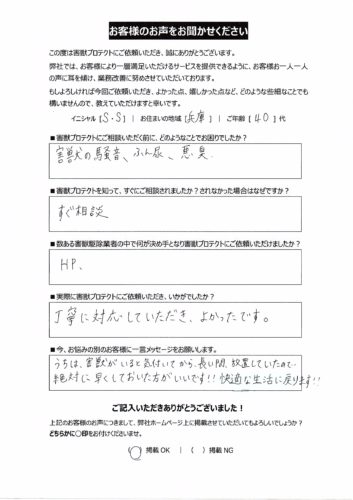 お客様のお声をお聞かせください
この度は害獣プロテクトにご依頼いただき、誠にありがとうございます。
弊社では、お客様により一層満足いただけるサービスを提供できるように、お客様お一人一人
の声に耳を傾け、業務改善に努めさせていただいております。
もしよろしければ今回ご依頼いただき、よかった点、嬉しかった点など、どのような些細なことでも
構いませんので、教えていただけますと幸いです。
イニシャル [S・S] | お住まいの地域 [兵庫] | ご年齢 [40] 代
■害獣プロテクトにご相談いただく前に、どのようなことでお困りでしたか？
害獣の騒音、ふん尿、悪臭、
■害獣プロテクトを知って、すぐにご相談されましたか？されなかった場合はなぜですか？
すぐ相談
■数ある害獣駆除業者の中で何が決め手となり害獣プロテクトにご依頼いただけましたか？
HP、
■実際に害獣プロテクトにご依頼いただき、いかがでしたか？
丁寧に対応していただき、よかったです。
■今、お悩みの別のお客様に一言メッセージをお願いします。
うちは、害獣がいると気付いてから、長い間、放置していたので、
絶対に早くしておいた方がいいです!! 快適な生活に戻ります!!
ご記入いただきありがとうございました！
上記のお客様のお声につきまして、弊社ホームページ上に掲載させていただいてもよろしいでしょうか？
どちらかに○印をお付けくださいませ。
(○) 掲載 OK | ( ) 掲載 NG